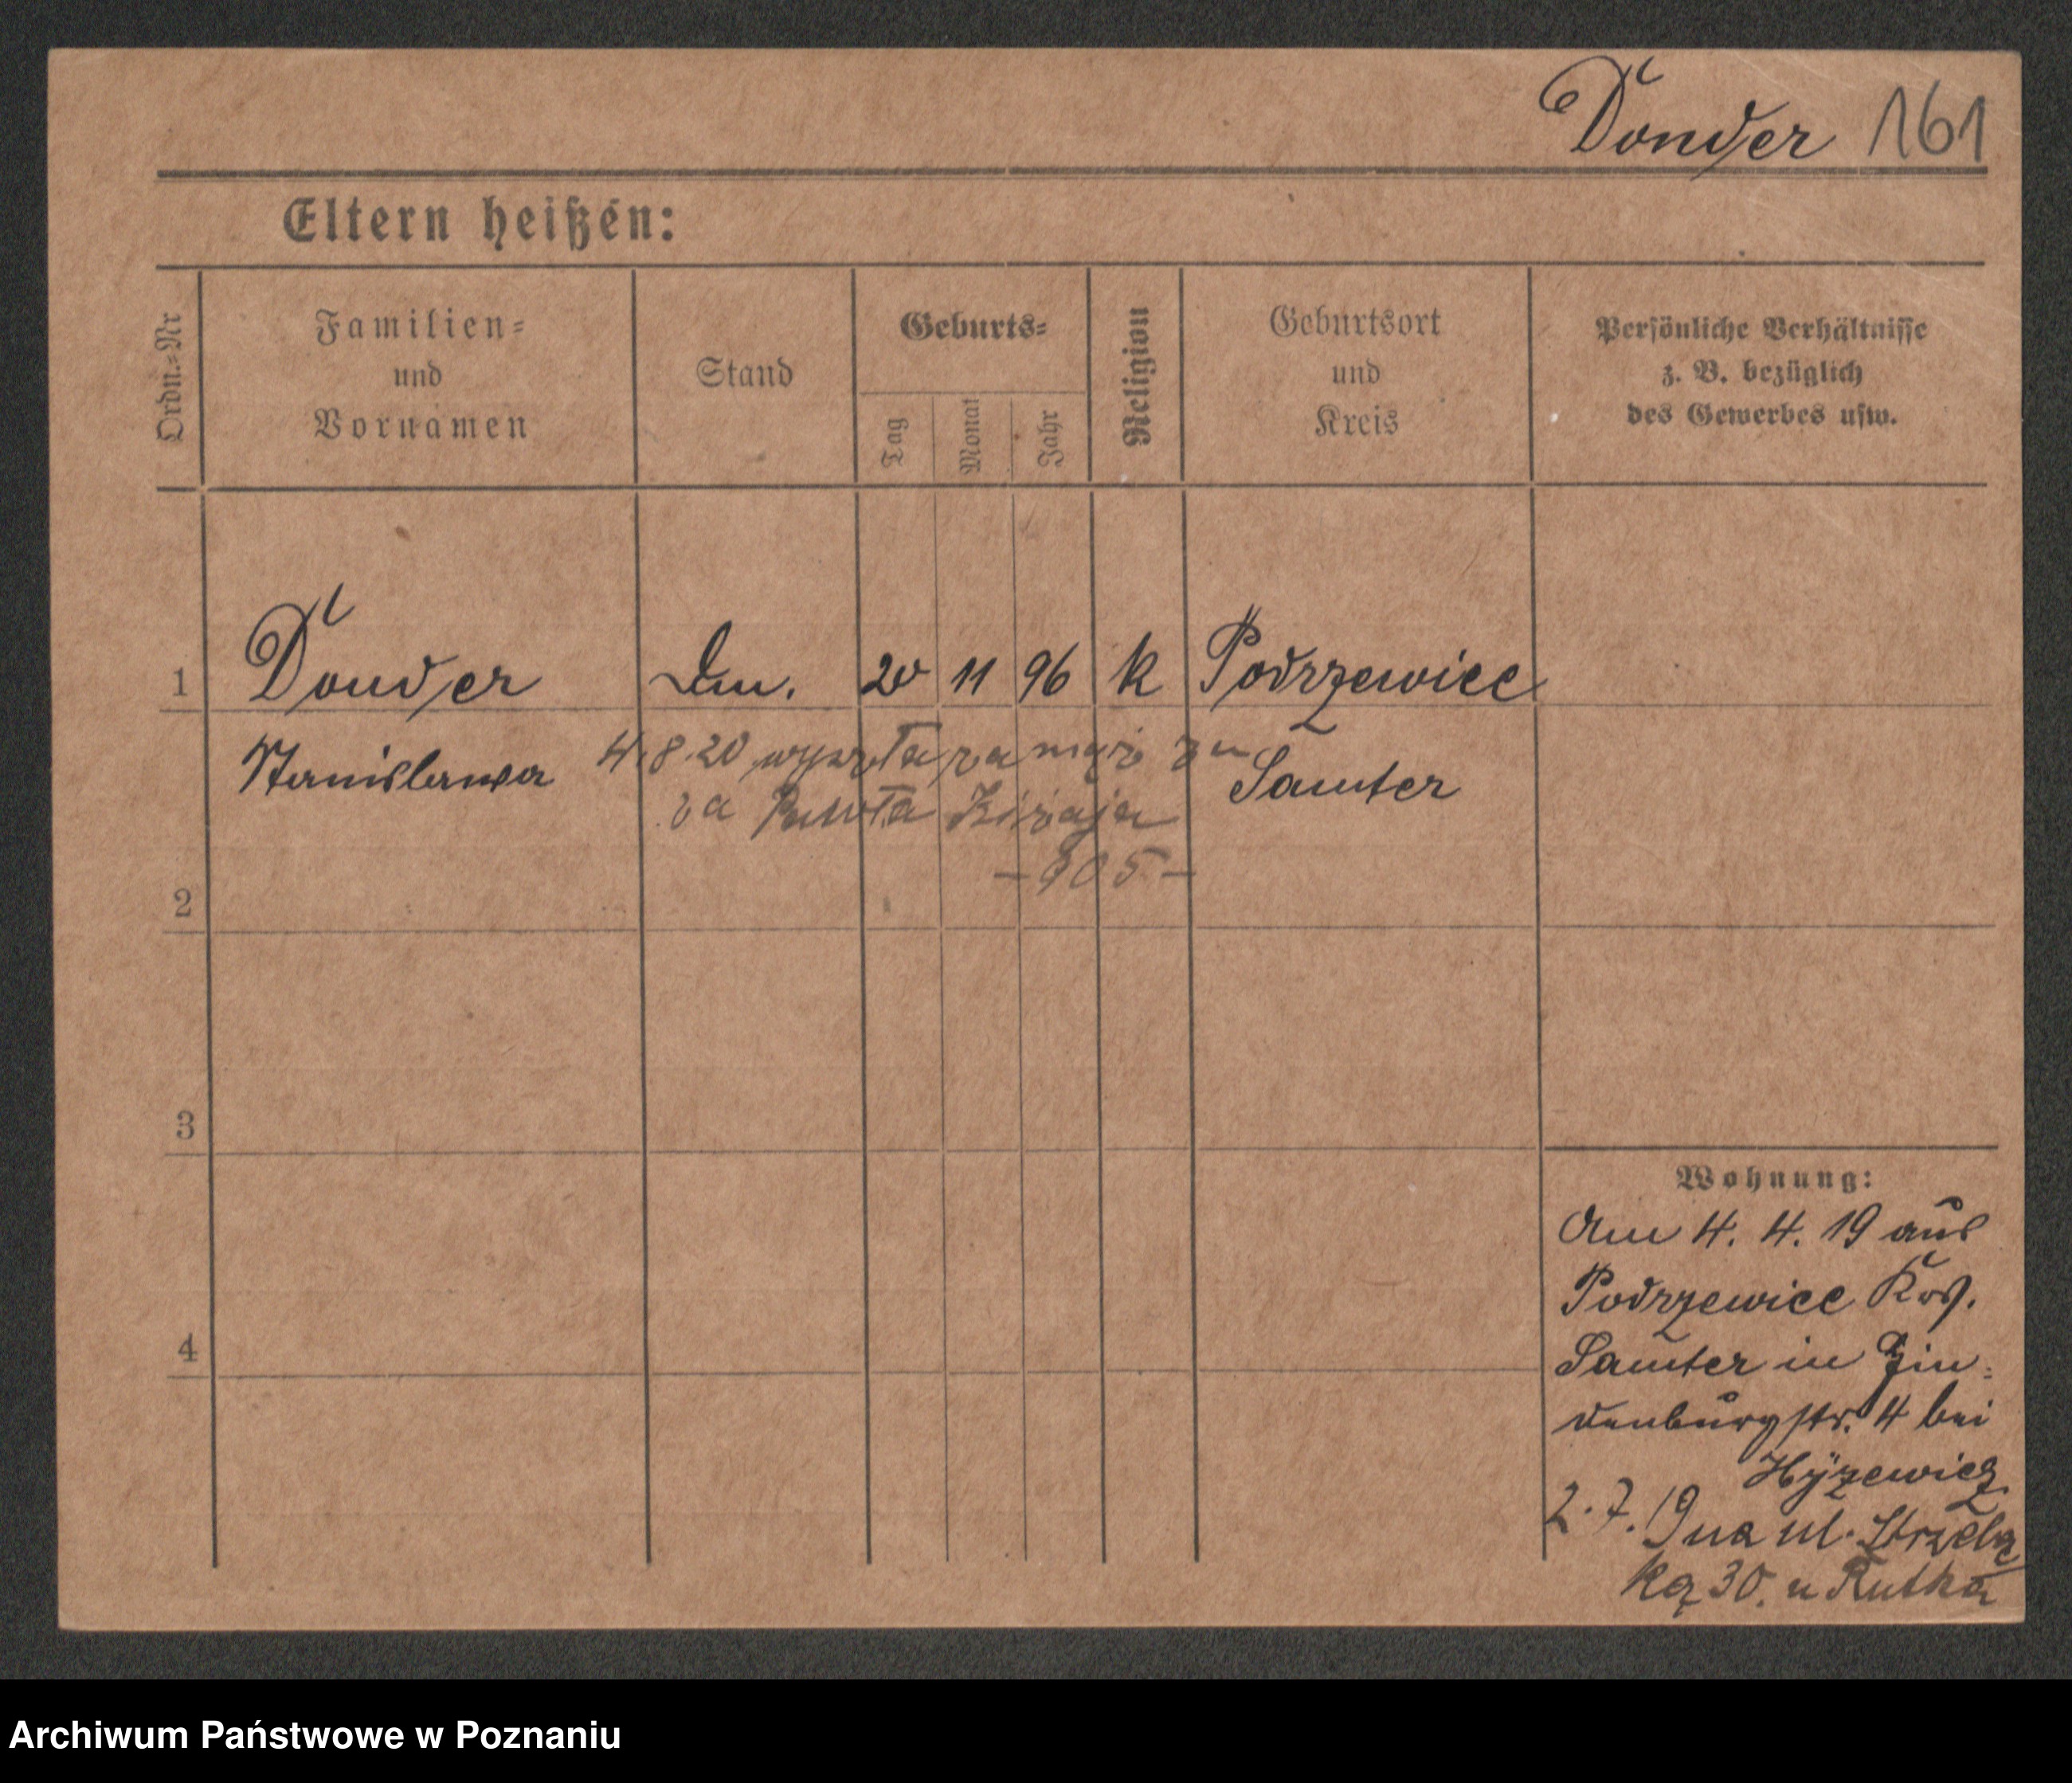 Donder 161
Eltern heißen:
Ordn.=Nr
Familien=
und
Vornamen
Stand
Geburts=
Tag
Monat
Jahr
Religion
Geburtsort
und
Kreis
Persönliche Verhältnisse
z. B. bezüglich
des Gewerbes usw.
1 Donder 20 11 96 k Podrzewice
Stanislawa 4.8.20 wyszła za mąż
Samter
za Pawła
- 905 -
2
3
4
Wohnung:
Am 4. 4. 19 aus
Podrzewice Krs.
Samter in Hin-
denburgstr. 4 bei
Hÿzewicz
2.7.19 na ul. Strzelec
ką 30. u Rutka
Archiwum Państwowe w Poznaniu